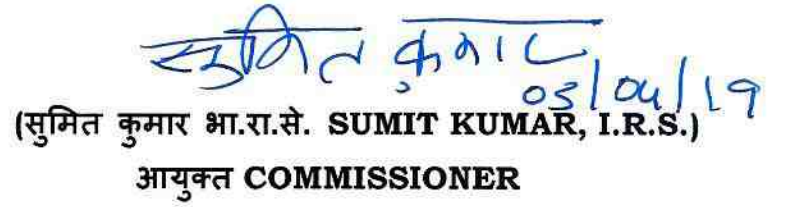 सुमित कुमार
03/04/19
(सुमित कुमार भा.रा.से. SUMIT KUMAR, I.R.S.)
आयुक्त COMMISSIONER